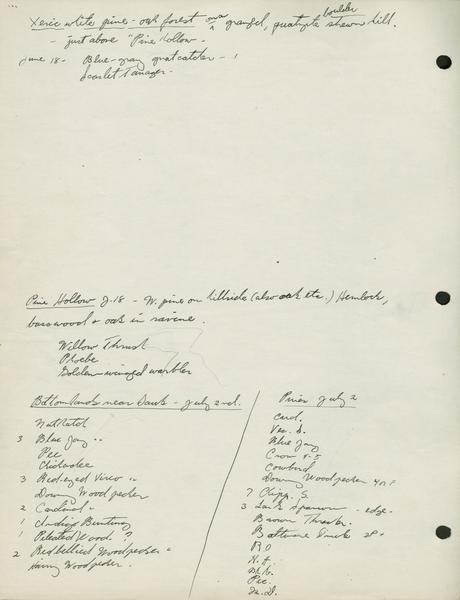 Xeric white pine - oak forest on a gravel, quartzite boulder strewn hill.
- just above "Pine Hollow -
June 18 - Blue-gray gnatcatcher - 1
Scarlet Tanager -
Pine Hollow J-18 - W. pine on hillside (also oak etc.) Hemlock,
basswood & oak in ravine.
Willow Thrush
Phoebe
Golden-winged warbler
Bottomlands near Sauk - July 2nd.
Nuthatch
3 Blue Jay "
Pee
Chickadee
3 Red-eyed Vireo "
Downy Woodpecker
2 Cardinal "
1 Indigo Bunting
1 Pileated Wood. ?
2 Redbellied Woodpecker "
Hairy Woodpecker.
Pines July 2
Card.
Ves. S.
Blue Jay
Crow
Cowbird
Downy Woodpecker
? Chipp. S.
3 Lark Sparrow - edge.
Brown Thrasher.
Baltimore
R O
H. f.
Pee.
M. D.